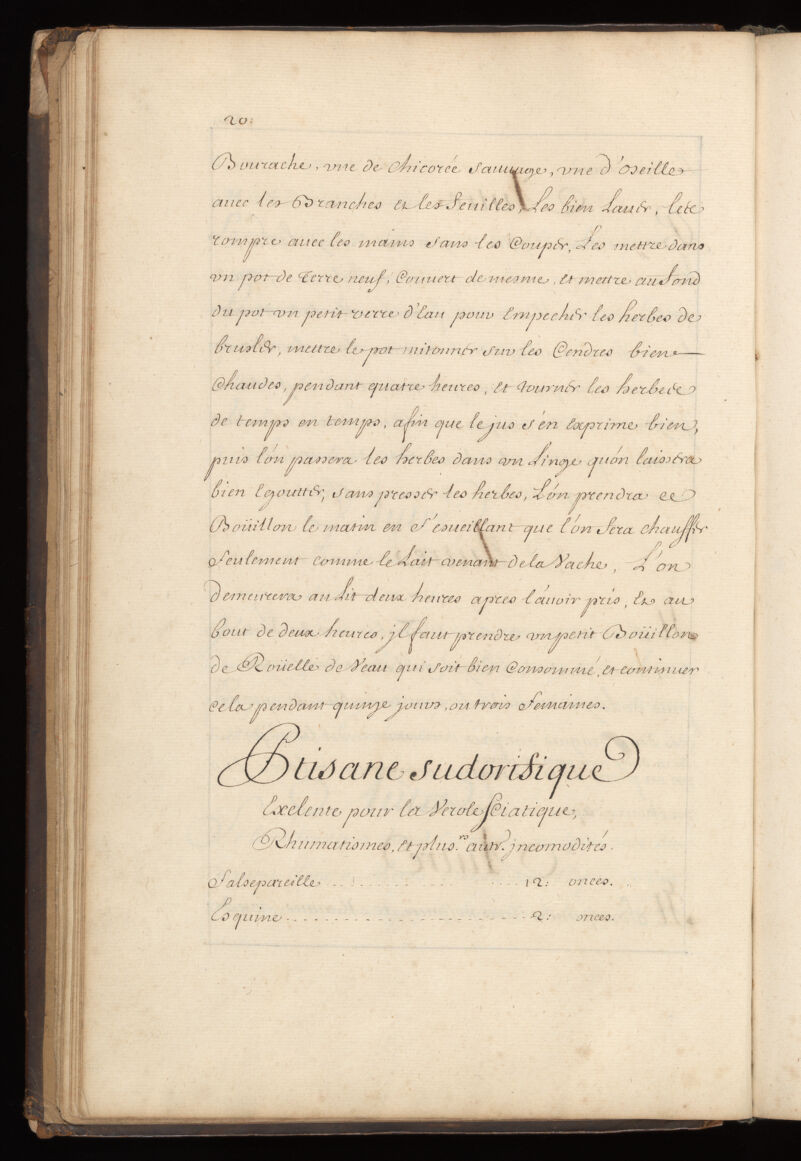 20.
Bourache, vne de chicorée sauuage, vne d'oseille
auec les Branches et les feuilles, Les bien Lauér, les
rompre auec les mains sans les Coupér, Les mettre dans
vn pot de terre neuf, Couuert de mesme, et mettre au fond
du pot vn petit verre d'Eau pour Empechér les herbes de
bruslér, mettre le pot mitonnér sur les Cendres bien
Chaudes, pendant quatre heures, et tournér les herbes
de temps en temps, afin que le jus s'en Exprime bien,
puis l'ón passera les herbes dans vn Linge qu'ón laissera
bien Egouttér, sans pressér les herbes, L'ón prendra ce
Boüillon le matin en s'esueillant que l'ón fera chauffér
seulement comme le Lait venant de la Vache, L'on
demeurera au Lit deux heures apres l'áuoir pris, Et au
bout de deux heures, jl faut prendre vn petit Boüillon
de Roüelle de Veau qui soit bien Consommé, et continuer
cela pendant quinze jours, ou trois semaines.
Ptisane sudorifique
Exelente pour la Verole Sciatique,
Rhumatismes, et plus.rs autr.s jncomodités.
Salsepareille . . . . . . . . . . . 12: onces.
Esquine . . . . . . . . . . . . . . . . . . 2: onces.